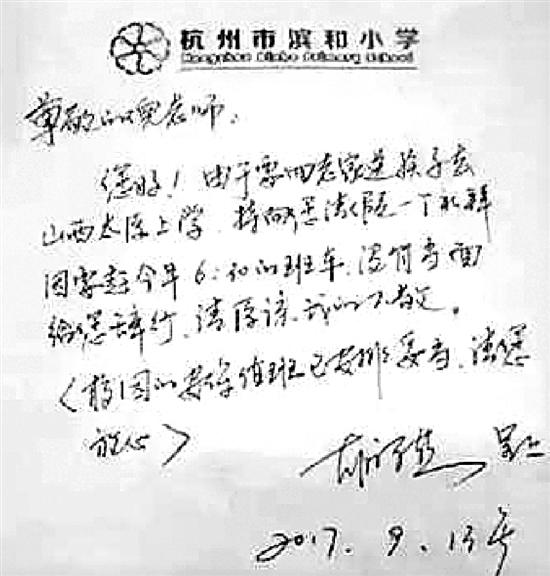 杭州市滨和小学
Hangzhou Binhe Primary School
尊敬的倪老师:
您好!由于需回老家送孩子去
山西太原上学,特向您请假一个礼拜
因需赶今早6:30的班车,没有当面
给您辞行,请原谅我的不敬。
(校园的安保值班已安排妥当,请您
放心)
呈上
2017.9.13号